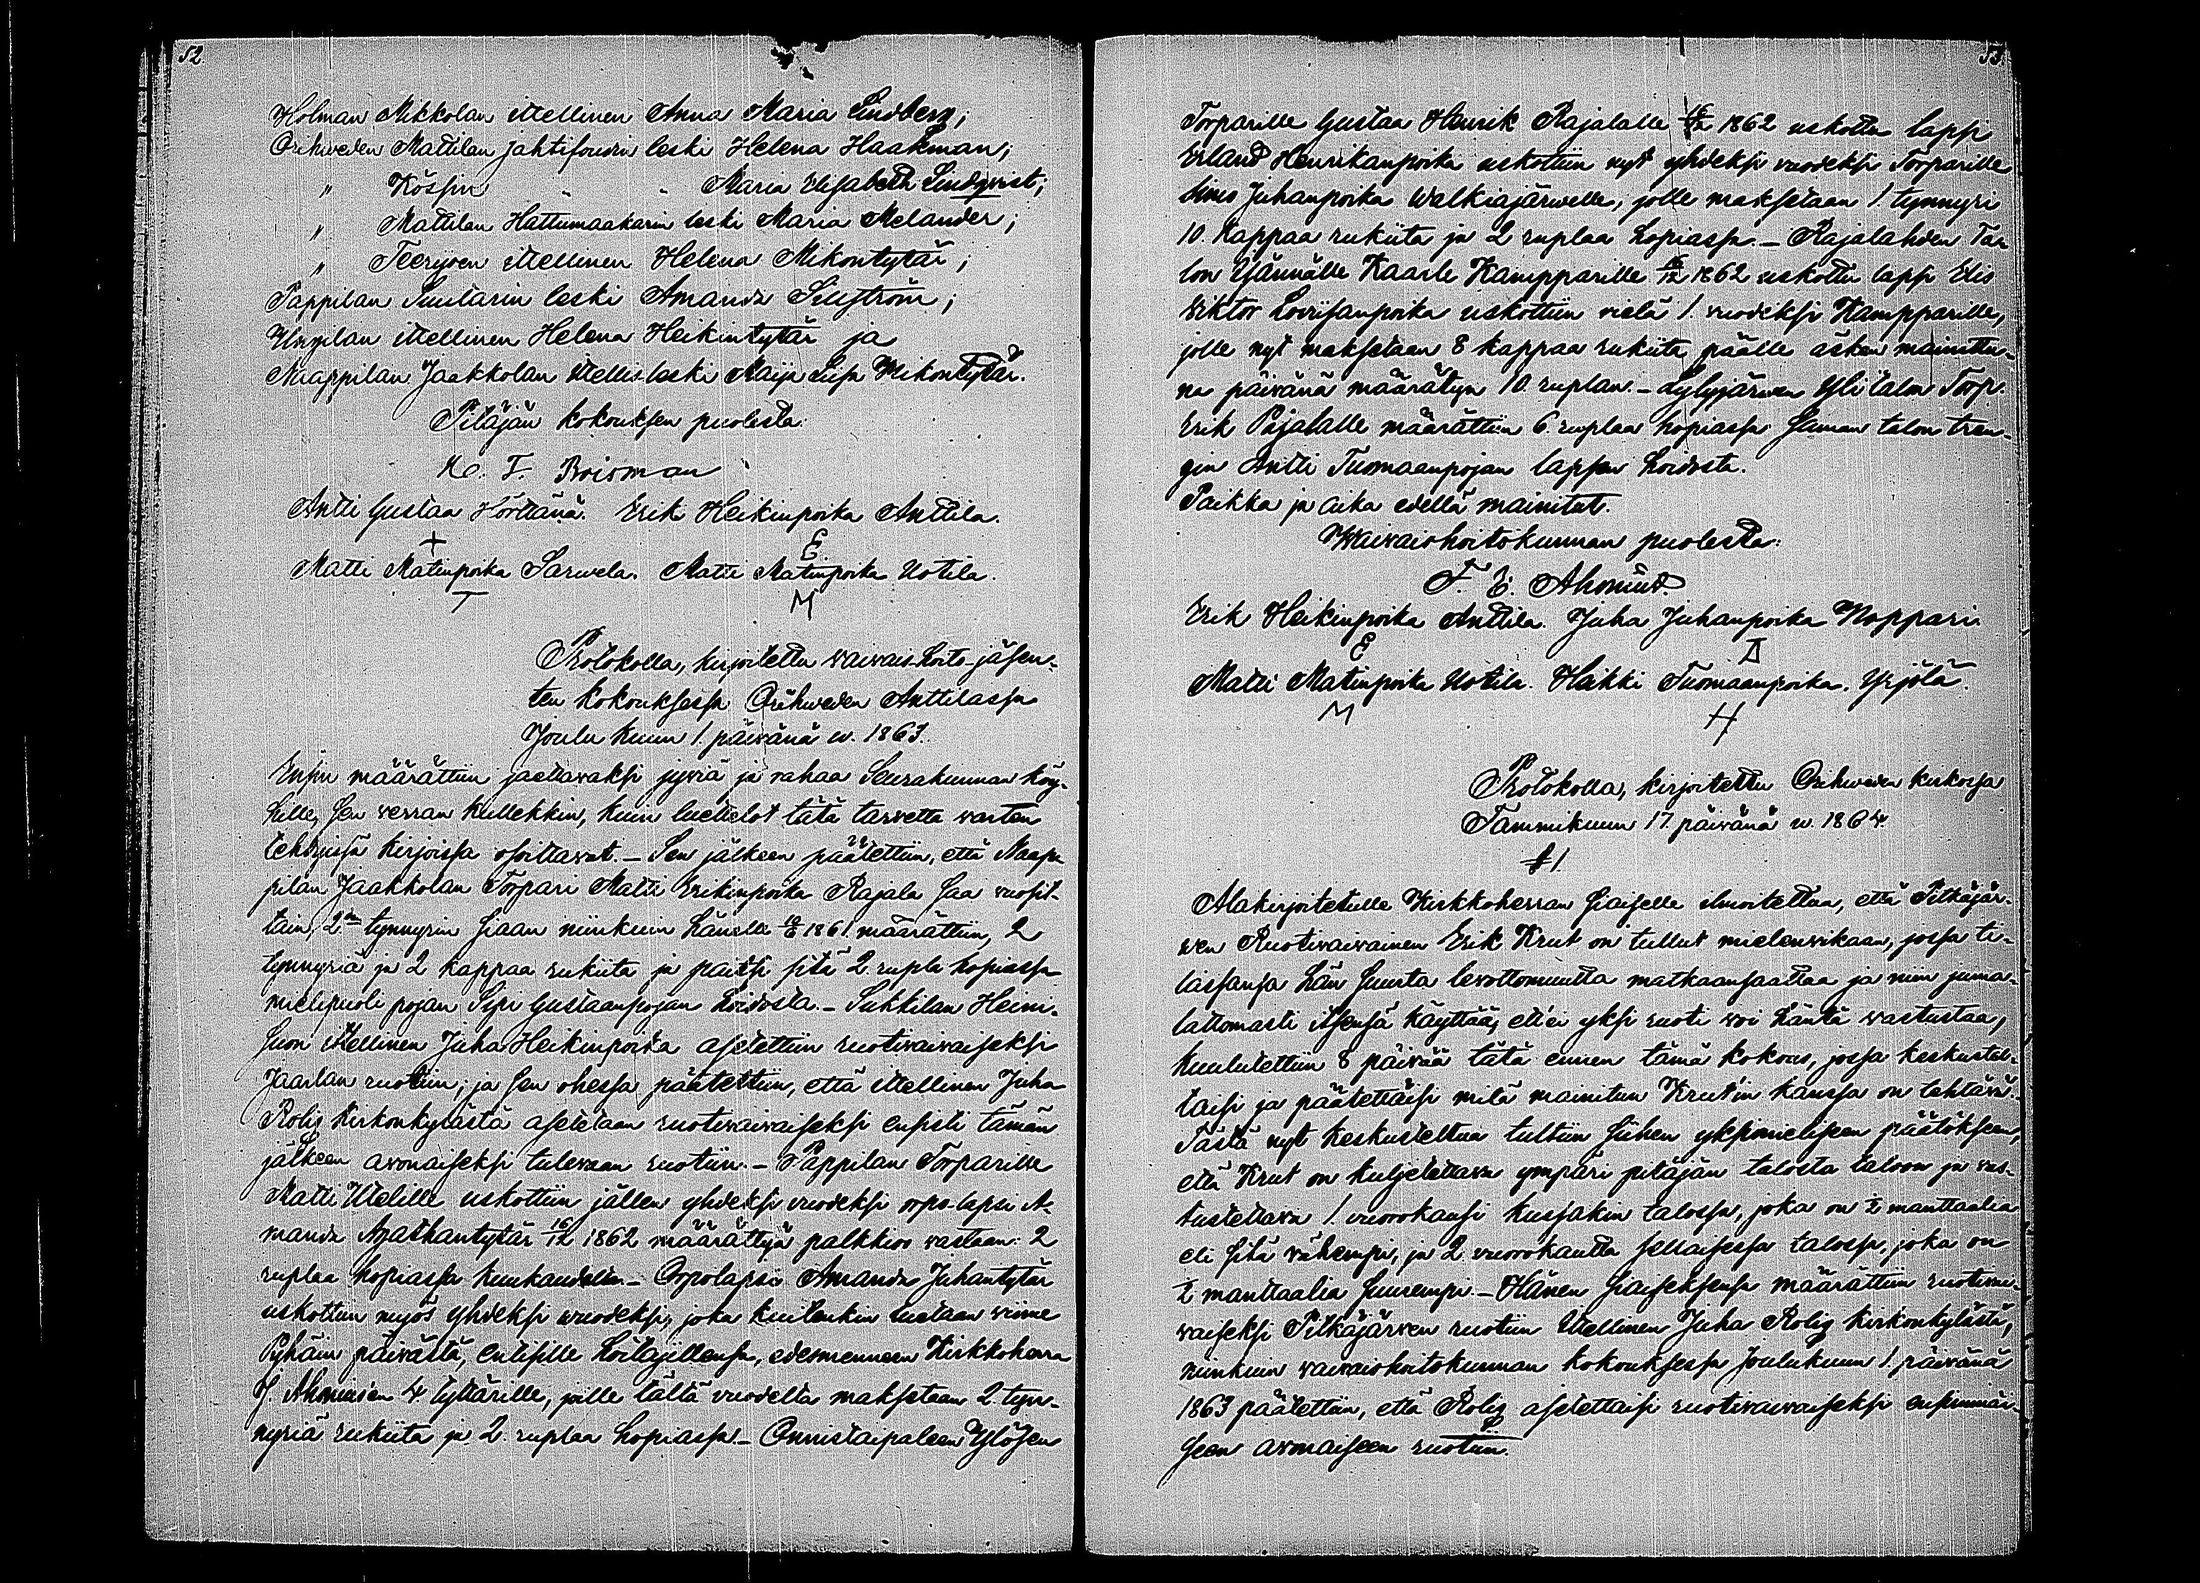 52
Holman Mikkolan itellinen Anna Maria Lindberg;
Orihweden Mattilan jahtifoudin leski Helena Haakman;
" Kössin " " Maria Elisabeth Lindqvist;
" Mattilan Hattumaakarin leski Maria Melander;
" Teerijoen itellinen Helena Mikontytär;
Pappilan Suutarin leski Amanda Sillström;
Uiherlan itellinen Helena Heikintytär ja
Naappilan Jaakkolan itellis-leski Maija Liisa Mikontytär.
Pitäjän kokouksen puolesta:
K. F. Boisman
Antti Gustaa Hörttänä. Erik Heikinpoika Anttila.
Matti Matinpoika Sarwela. Matti Matinpoika Uotila.
Protokolla, kirjoitettu waiwais-hoito-jäsen-
ten kokouksessa Orihweden Anttilassa
Joulu kuun 1. päivänä w. 1863.
Ensin määrättiin jaettavaksi jywiä ja rahaa Seurakunnan köy-
hille, sen werran kullekkin, kuin luettelot tätä tarwetta warten
tehdyissä kirjoissa osoittavat. – Sen jälkeen päätettiin, että Naap-
pilan Jaakkolan Torpari Matti Erikinpoika Rajala saa vuosit-
tain, 2:n tynnyrin siaan niinkuin hänelle 1861 määrättiin, 2
tynnyriä ja 2 kappaa rukiita ja paitsi sitä 2 rupla hopiassa
mielipuoli pojan Sipi Gustaanpojan hoidosta. – Sukkilan Heini-
suon itellinen Juha Heikinpoika asetettiin ruotiwaiwaiseksi
Jaarlan ruotiin; ja sen ohessa päätettiin, että itellinen Juha
Rolig kirkonkylästä asetetaan ruotiwaiwaiseksi ensisti tämän
jälkeen avonaiseksi tulevaan ruotiin. – Pappilan Torparille
Matti Utelille uskottiin jällen yhdeksi vuodeksi orpo-lapsi A-
manda Agathantytär 16/12 1862 määrättyä palkkioo vastaan: 2
ruplaa hopiassa kuukaudelta. – Orpolapsi Amanda Juhantytär
uskottiin myös yhdeksi wuodeksi, joka kuitenkin luetaan wiime
Pyhäin päivästä, entisille hoitajillensa, edesmenneen Kirkkoherra
J. Ahoniusen 4 tyttärille, joille tältä vuodelta maksetaan 2 tyn-
nyriä rukiita ja 2 ruplaa hopiassa. – Onnistaipaleen Ylösen
53.
Torparille Gustaa Henrik Rajalalle 1862 uskottu lapsi
Erland Henrikanpoika uskottiin nyt yhdeksi vuodeksi Torparille
Simo Juhanpoika Walkiajärwelle, jolle maksetaan 1. tynnyri
10. kappaa rukiita ja 2 ruplaa hopiassa. – Rajalahden Ta-
lon Isännälle Kaarle Kampparille 1862 uskottu lapsi Elis
Viktor Loviisanpoika uskottiin vielä 1. vuodeksi Kampparille,
jolle nyt maksetaan 8 kappaa rukiita päälle äsken mainittu-
na päivänä määrätyn 10. ruplan. – Lylyjärwen Ylitalon Torp.
Erik Pajalalle määrättiin 6 ruplaa hopiassa saman talon tren-
gin Antti Tuomaanpojan lapsen hoidosta.
Paikka ja aika edellä mainitut.
Waiwaishoitokunnan puolesta:
F. E. Ahonius
Erik Heikinpoika Anttila. Juha Juhanpoika Noppari.
Matti Matinpoika Uotila. Heikki Tuomaanpoika. Yrjölä.
Protokolla, kirjoitettu Orihweden kirkossa
Tammikuun 17 päivänä w. 1864.
§ 1.
Alakirjoitetulle Kirkkoherran siaiselle ilmoitettua, että Pitkäjär-
wen Ruotiwaiwainen Erik Krut on tullut mielenvikaan, jossa ti-
lassansa hän suurta levottomuutta matkaansaattaa ja niin juma-
lattomasti itsensä käyttää, ett'ei yksi ruoti voi häntä vastustaa,
kuulutettiin 8 päivää tätä ennen tämä kokous, jossa keskustel-
taisi ja päätettäisi mitä mainitun Krut'in kanssa on tehtävä.
Tästä nyt keskusteltua tultiin siihen yksimieliseen päätökseen,
että Krut on kuljetettava ympäri pitäjän talosta taloon ja vas-
tustettava 1. vuorokausi kussakin talossa, joka on ½ manttaalia
eli sitä vähempi, ja 2 vuorokautta sellaisessa talossa, joka on
½ manttaalia suurempi. – Hänen siaiseksensa määrättiin ruotiwai-
waiseksi Pitkäjärwen ruotiin itellinen Juha Rolig kirkonkylästä,
niinkuin waiwaishoitokunnan kokouksessa Joulukuun 1. päivänä
1863 päätettiin, että Rolig asetettaisi ruotiwaiwaiseksi ensimmäi-
seen avonaiseen ruotiin.